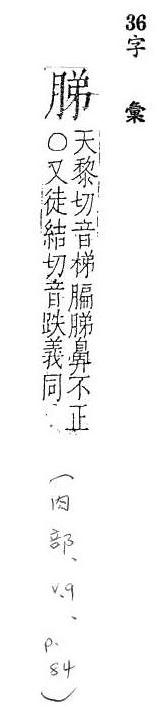 36
字彙
䏲
天黎切音梯䏲鼻不正
○又徒結切音跌義同
(肉部、v.9、p.84)